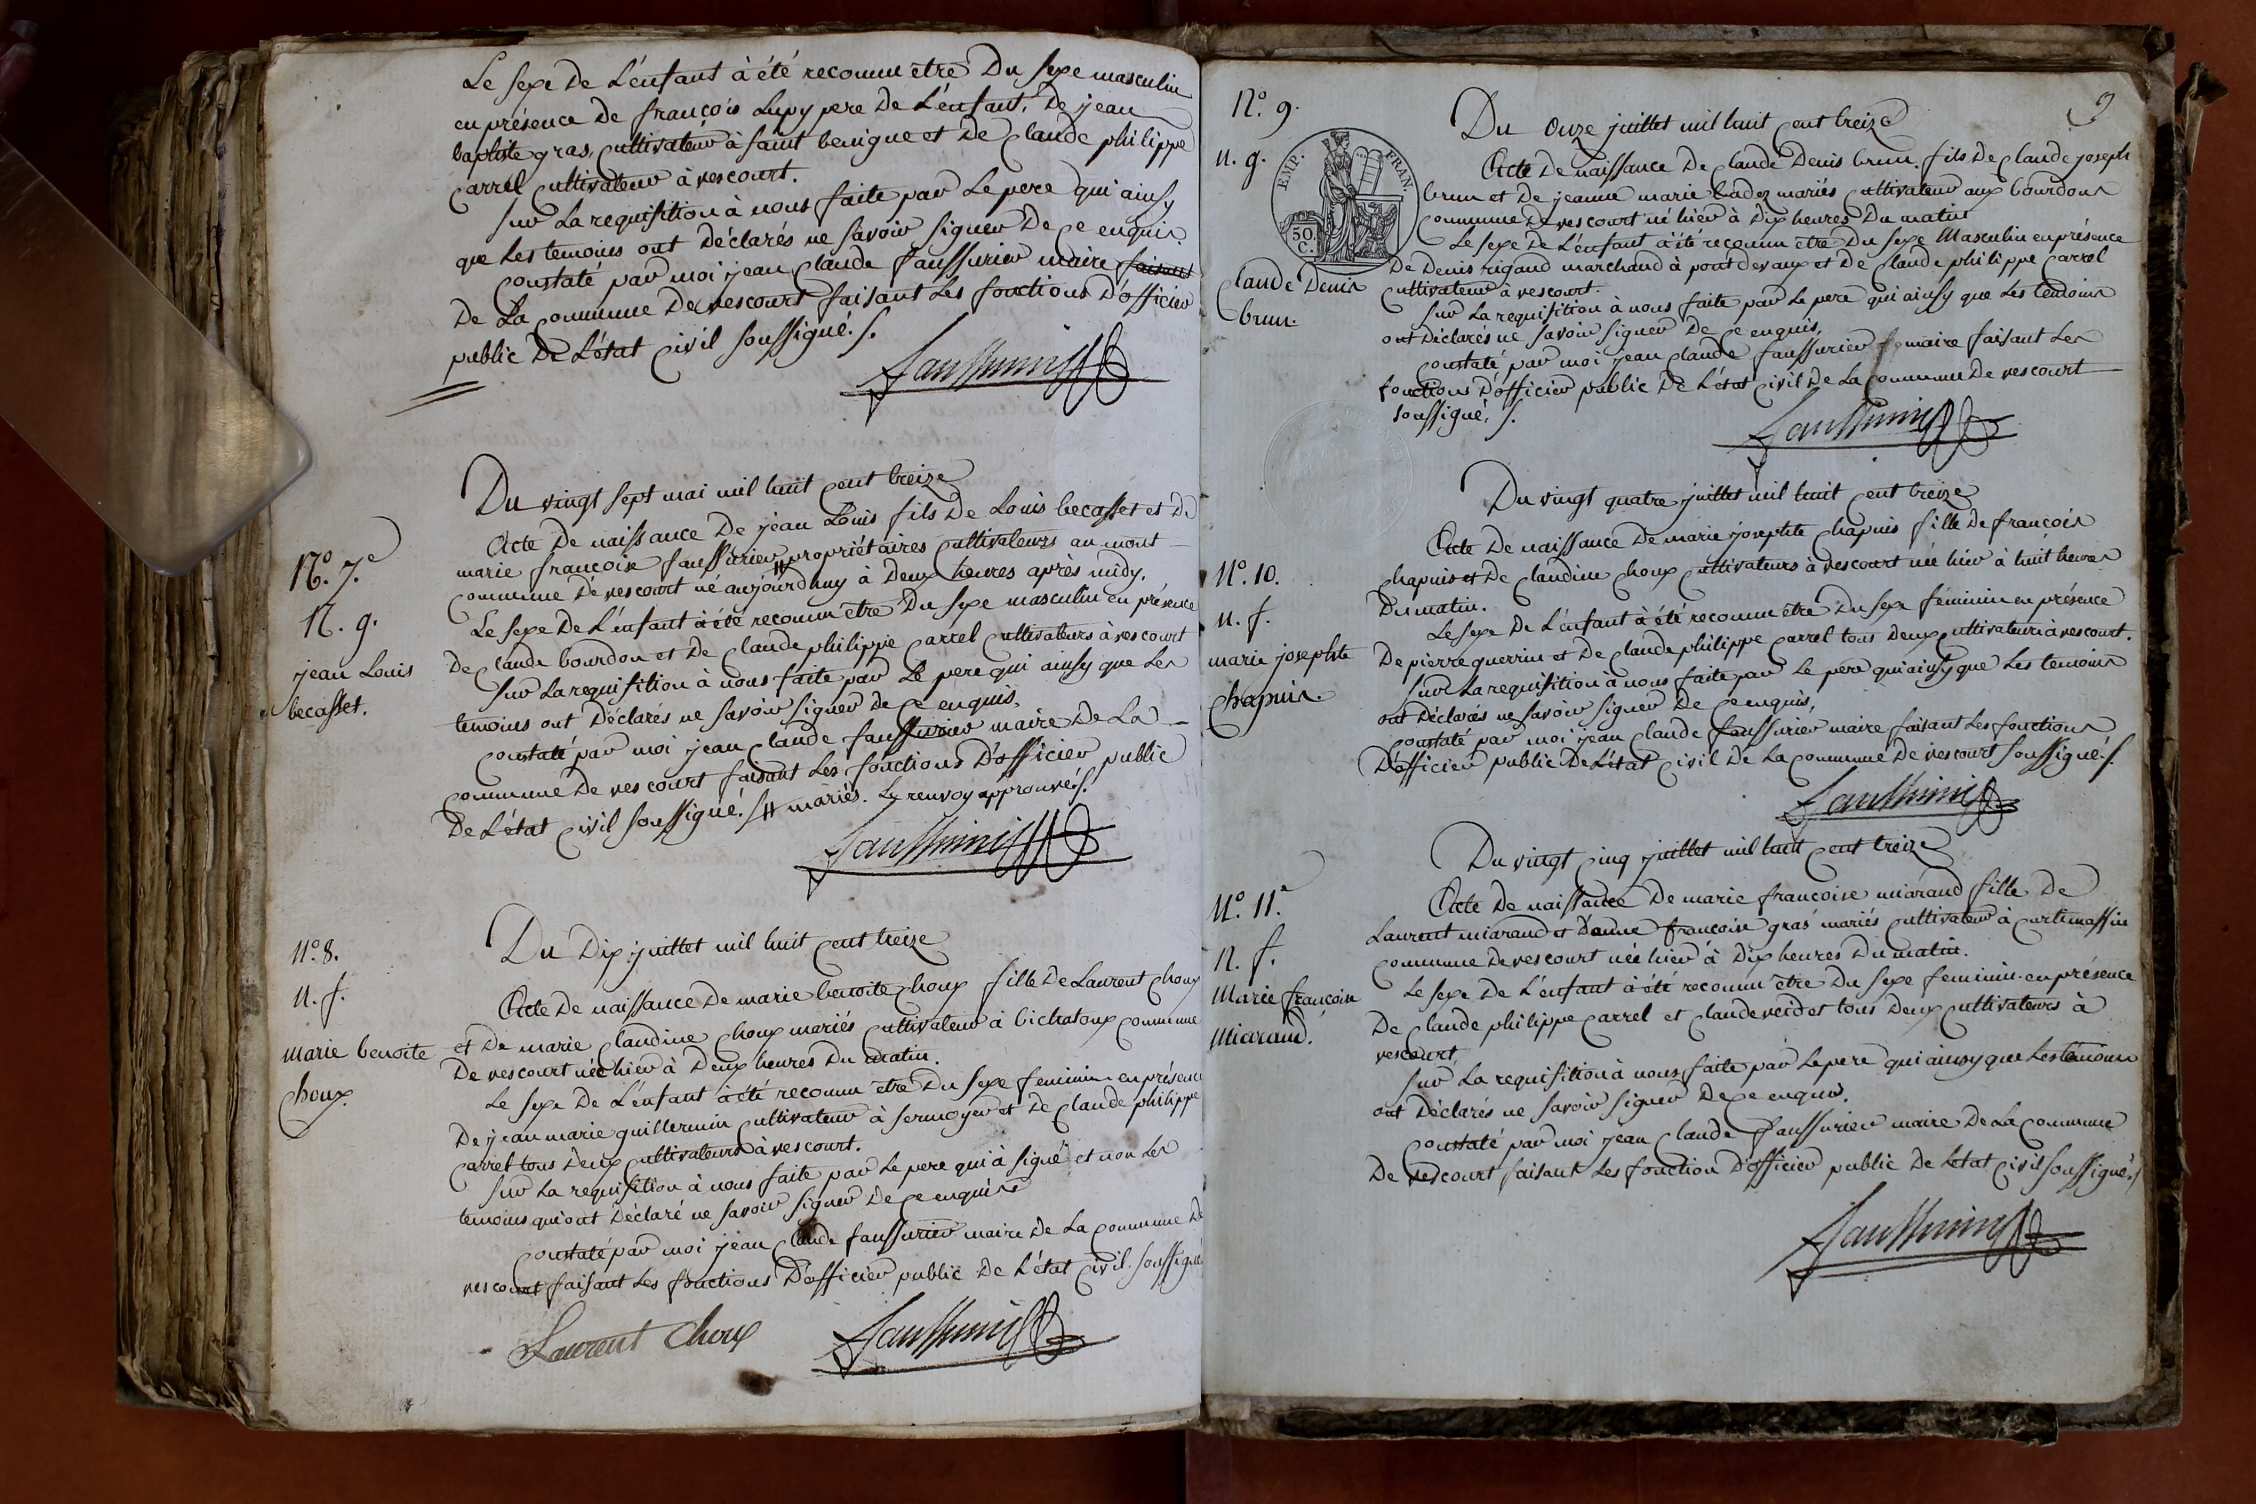 Le sexe De L'énfant à été reconnu etre Du sexe masculin
en présence de françois Lupy pere De L'énfant, De jean
baptiste gras, Cultivateur à saint benigne et De Claude philippe
Carrel Cultivateur à vescourt.
Sur La requisition à nous faite par Le pere qui ainsy
que Les temoins ont Déclarés ne savoir signer De Ce enquis.
Constaté par moi jean Claude faussurier maire faisant
De La Commune De vescourt faisant Les fonctions D'officier
public De L'état Civil soussigné. /.
N.º 7.e
N. g.
jean Louis
becasset.
Du vingt sept mai mil huit Cent treize
Acte De naissance De jean Louis fils De Louis becasset et De
marie françoise faussurier # propriétaires Cultivateurs au mont
Commune De vescourt né aujourdhuy à Deux heures après midy.
Le sexe De L'énfant à été reconnu être Du sexe masculin en présence
De Claude bourdon et De Claude philippe Carrel Cultivateurs à vescourt
Sur La requisition à nous faite par Le pere qui ainsy que Les
temoins ont Déclarés ne savoir signer de Ce enquis.
Constaté par moi jean Claude faussurier maire De La
Commune De vescourt faisant Les fonctions D'officier public
De L'état Civil soussigné. /# mariés. Le renvoy approuvé /.
N.º 8.
N. f.
marie benoite
Choux
Du Dix juillet mil huit Cent treize
Acte De naissance De marie benoite Choux fille De Laurent Choux
et De marie Claudine Choux mariés Cultivateur à bichatoux Commune
De vescourt née hier à Deux heures Du matin.
Le sexe De L'énfant à été reconnu être Du sexe feminin en présence
De jean marie guillermin Cultivateur à sermoyer et De Claude philippe
Carrel tous Deux Cultivateurs à vescourt.
Sur La requisition à nous faite par Le pere qui à signé et non Les
temoins qui ont Déclaré ne savoir signer De Ce enquis
Constaté par moi jean Claude faussurier maire De La Commune De
vescourt faisant Les fonctions D'officier public De L'état Civil. soussigné
Laurent Choux
9
N.º 9.
N. g.
EMP. FRAN.
50.
C.
Claude Denis
brun.
Du Onze juillet mil huit Cent treize
Acte De naissance De Claude Denis brun. fils De Claude joseph
brun et De jeanne marie badoz mariés Cultivateur aux bourdons
Commune De vescourt né hier à Dix heures Du matin
Le sexe De L'énfant à été reconnu etre Du sexe Masculin en présence
De Denis rigaud marchand à pontdevaux et De Claude philippe Carrel
Cultivateur à vescourt.
Sur La requisition à nous faite par Le pere qui ainsy que Les temoins
ont Déclarés ne savoir signer De Ce enquis.
Constaté par moi jean Claude faussurier maire faisant Les
fonctions D'officier public De L'état Civil De La Commune De vescourt
soussigné. /.
N.º 10.
N. f.
marie josephte
Chapuis.
Du vingt quatre juillet mil huit Cent treize
Acte De naissance De marie josephte Chapuis fille De françois
Chapuis et De Claudine Choux Cultivateurs à vescourt née hier à huit heures
Du matin.
Le sexe De L'énfant à été reconnu etre Du sexe féminin en présence
De pierre guerrin et De Claude philippe Carrel tous Deux Cultivateur à vescourt.
Sur La requisition à nous faite par Le pere qui ainsy que Les temoins
ont Déclarés ne savoir signer De Ce enquis,
Constaté par moi jean Claude faussurier maire faisant Les fonctions
D'officier public De L'état Civil De La Commune De vescourt soussigné. /.
N.º 11.e
N. f.
Marie françoise
Miaraud.
Du vingt Cinq juillet mil huit Cent treize
Acte De naissance De marie françoise miaraud fille De
Laurent miaraud et D'anne françoise gras mariés Cultivateur à Curtimassin
Commune De vescourt née hier à Dix heures Du matin.
Le sexe De L'énfant à été reconnu être Du sexe feminin. en présence
De Claude philippe Carrel et Claude tous Deux Cultivateurs à
vescourt,
Sur La requisition à nous faite par Le pere qui ainsy que Les témoins
ont Déclarés ne savoir signer De Ce enquis.
Constaté par moi jean Claude faussurier maire De La Commune
De vescourt faisant Les fonction D'officier public De L'état Civil soussigné. /